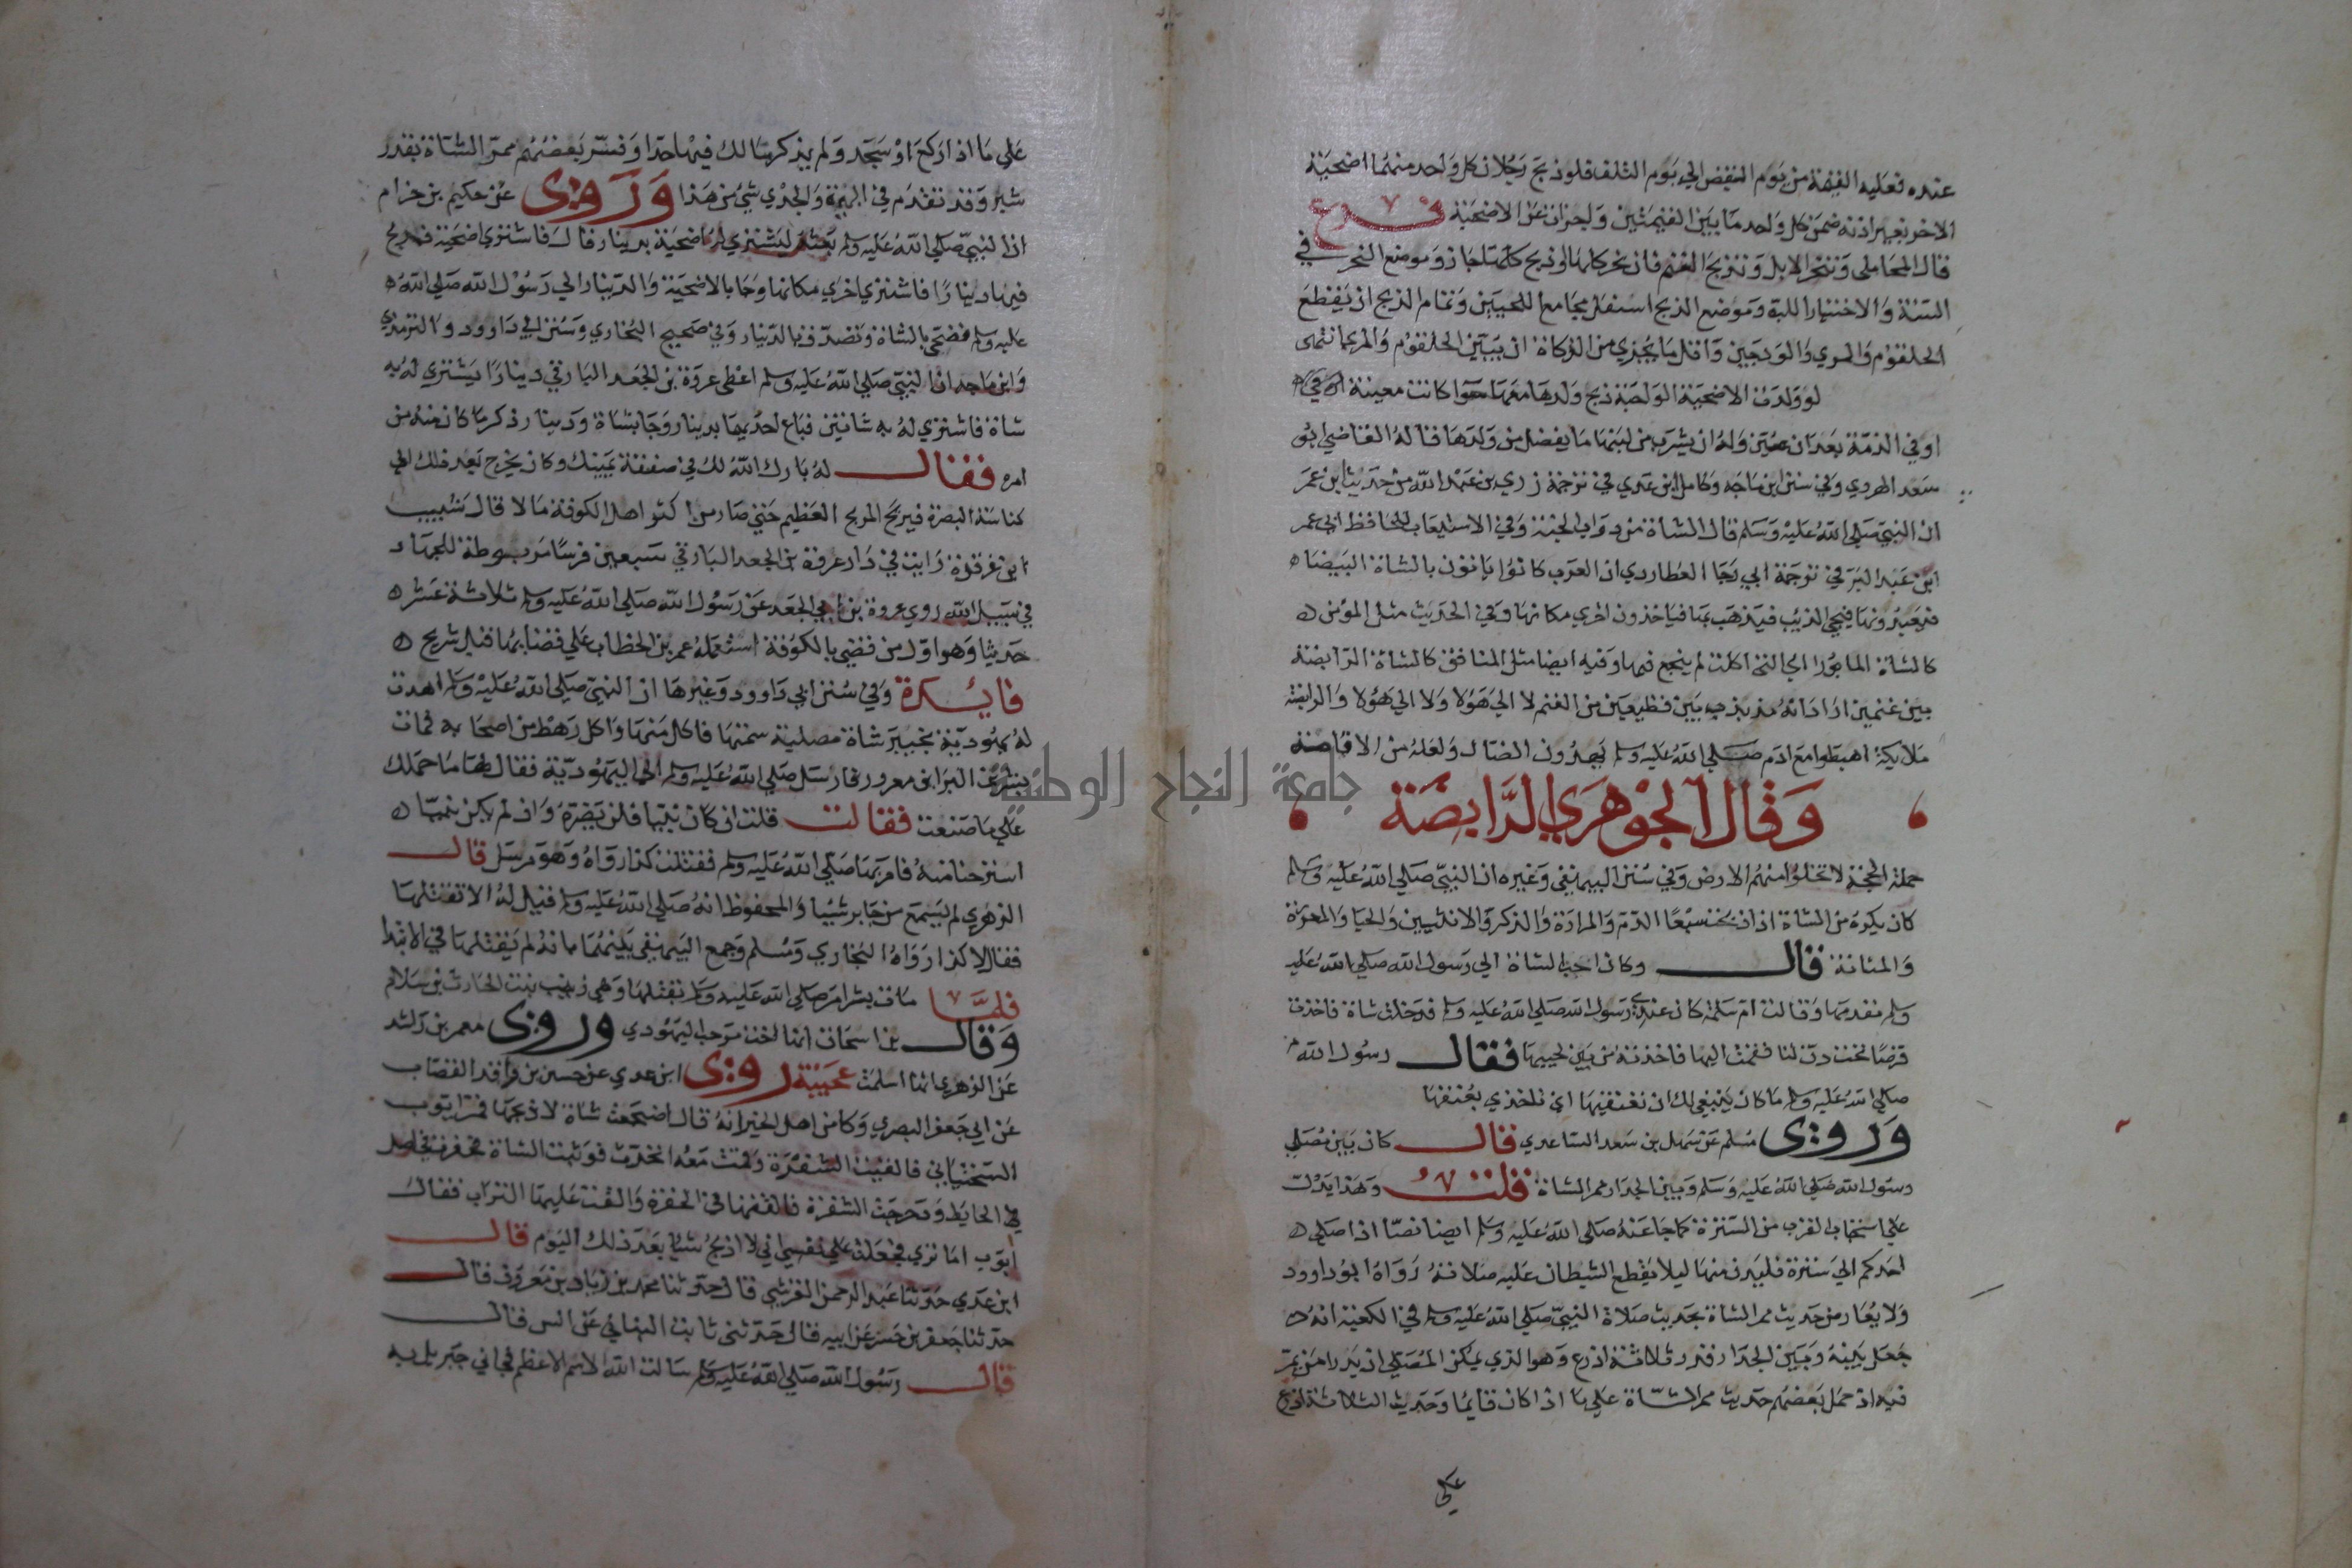 عنده فعليه القيمة من يوم القبض الي يوم التلف فلو ذبح رجلان كل واحد منهما اضحية
الاخر بغير اذنه ضمن كل واحد ما بين القيمتين واجزات عن الاضحية فرع
قال المحاملي وتنحر الابل وتذبح الغنم فان نحر كلها او ذبح كلها جاز وموضع النحر في
السنة والاختيار اللبة وموضع الذبح اسفل مجامع اللحيين وتمام الذبح ان يقطع
الحلقوم والمري والودجين واقل ما يجزي من الذكاة ان يبين الحلقوم والمري انتهى
لو ولدت الاضحية الواجبة ذبح ولدها معها سوا كانت معينة
او في الذمة بعد ان عين وله ان يشرب من لبنها ما يفضل من ولدها قاله القاضي ابو
سعد الهروي وفي سنن ابن ماجه وكامل ابن عدي في ترجمة زربي بن عبد الله من حديث ابن عمر
ان النبي صلي الله عليه وسلم قال الشاة من دواب الجنة وفي الاستيعاب للحافظ ابي عمر
ابن عبد البر في ترجمة ابي رجا العطاردي ان العرب كانوا ياتون بالشاة البيضا
فيعبدونها فيجي الذيب فيذهب بها فياخذون اخري مكانها وفي الحديث مثل المؤمن
كالشاة المابورة اي التي اكلت لم ينجع فيها وفيه ايضا مثل المنافق كالشاة الرابضة
بين غنمين اراد انه مذبذب بين قطيعين من الغنم لا الي هولا ولا الي هولا والرابضة
ملايكة اهبطوا مع ادم صلي الله عليه وسلم يهدون الضال ولعله من الاقامة
وقال الجوهري الرابضة
حملة الحجة لا تخلوا منهم الارض وفي سنن البيهقي وغيره ان النبي صلي الله عليه وسلم
كان يكره من الشاة اذا ذبحت سبعا الدم والمرارة والذكر والانثيين والحيا والغدة
والمثانة قال وكان احب الشاة الي رسول الله صلي الله عليه
وسلم مقدمها وقالت ام سلمة كان عندي رسول الله صلي الله عليه وسلم فدخلت شاة فاخذت
قرصا تحت دن لنا فقمت اليها فاخذته من بين لحييها فقال رسول الله
صلي الله عليه وسلم ما كان ينبغي لك ان تعنقيها اي تاخذي بعنقها
وروى مسلم عن سهل بن سعد الساعدي قال كان بين مصلي
رسول الله صلي الله عليه وسلم وبين الجدار ممر الشاة قلت وهذا يدل
علي استحباب القرب من السترة كما جا عنه صلي الله عليه وسلم ايضا نصا اذا صلي
احدكم الي سترة فليدن منها ليلا يقطع الشيطان عليه صلاته رواه ابو داوود
ولا يعارض حديث ممر الشاة بحديث صلاة النبي صلي الله عليه وسلم في الكعبة انه
جعل بينه وبين الجدار قدر ثلاثة اذرع وهو الذي يمكن المصلي ان يدرا من يمر
فيه اذ حمل بعضهم حديث ممر الشاة علي ما اذا كان قايما وحديث الثلاثة اذرع
علي
علي ما اذا ركع او سجد ولم يذكر مالك فيها حدا وفسر بعضهم ممر الشاة بقدر
شبر وقد تقدم في البهيمة والجدي شي من هذا وروى عن حكيم بن حزام
ان النبي صلي الله عليه وسلم بعثه ليشتري له اضحية بدينار قال فاشتري اضحية فربح
فيها دينارا فاشتري اخري مكانها وجا بالاضحية والدينار الي رسول الله صلي الله
عليه وسلم فضحى بالشاة وتصدق بالدينار وفي صحيح البخاري وسنن ابي داوود والترمذي
وابن ماجه ان النبي صلي الله عليه وسلم اعطى عروة بن الجعد البارقي دينارا يشتري له به
شاة فاشتري له به شاتين فباع احديهما بدينار وجا بشاة ودينار وذكر ما كان منه من
امره فقال له بارك الله لك في صفقة يمينك وكان يخرج بعد ذلك الي
كناسة البصرة فيربح الربح العظيم حتي صار من اكثر اهل الكوفة مالا قال شبيب
ابن غرقدة رايت في دار عروة بن الجعد البارقي سبعين فرسا مربوطة للجهاد
في سبيل الله روي عروة بن ابي الجعد عن رسول الله صلي الله عليه وسلم ثلاثة عشر
حديثا وهو اول من قضي بالكوفة استعمله عمر بن الخطاب علي قضايها قبل شريح
فايدة وفي سنن ابي داوود وغيرها ان النبي صلي الله عليه وسلم اهدت
له يهودية بخيبر شاة مصلية سمتها فاكل منها واكل رهط من اصحابه فمات
بشر بن البرا بن معرور فارسل صلي الله عليه وسلم الي اليهودية فقال لها ما حملك
علي ما صنعت فقالت قلت ان كان نبيا فلن يضره وان لم يكن نبيا
استرحنا منه فامر بها صلي الله عليه وسلم فقتلت كذا رواه وهو مرسل قال
الزهري لم يسمع من جابر شيا والمحفوظ انه صلي الله عليه وسلم قيل له الا تقتلها
فقال لا كذا رواه البخاري ومسلم وجمع البيهقي بينهما بانه لم يقتلها في الابتدا
فلما مات بشر امر صلي الله عليه وسلم بقتلها وهي زينب بنت الحارث بن سلام
وقال بن اسحاق انها اخت مرحب اليهودي وروى معمر بن راشد
عن الزهري انها اسلمت عجيبة روى ابن عدي عن حسن بن واقد القصاب
عن ابي جعفر البصري وكان من اهل الخير انه قال اضجعت شاة لاذبحها فمر ايوب
السختياني فالقيت الشفرة وقمت معه اتحدث فوثبت الشاة فحفرت في اصل
الحايط ودحرجت الشفرة فالقتها في الحفرة والقت عليها التراب فقال
ايوب اما تري فجعلت علي نفسي اني لا اذبح شيا بعد ذلك اليوم قال
ابن عدي حدثنا عبد الرحمن القرشي قال حدثنا محمد بن زياد بن معروف قال
حدثنا جعفر بن حسن عن ابيه قال حدثني ثابت البناني عن انس قال
قال رسول الله صلي الله عليه وسلم سالت الله الاسم الاعظم فجاني جبريل به
جامعة النجاح الوطنية